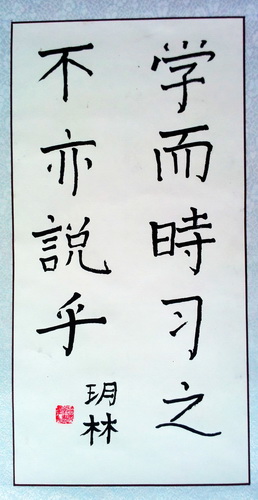 学而時习之
不亦説乎
玥林